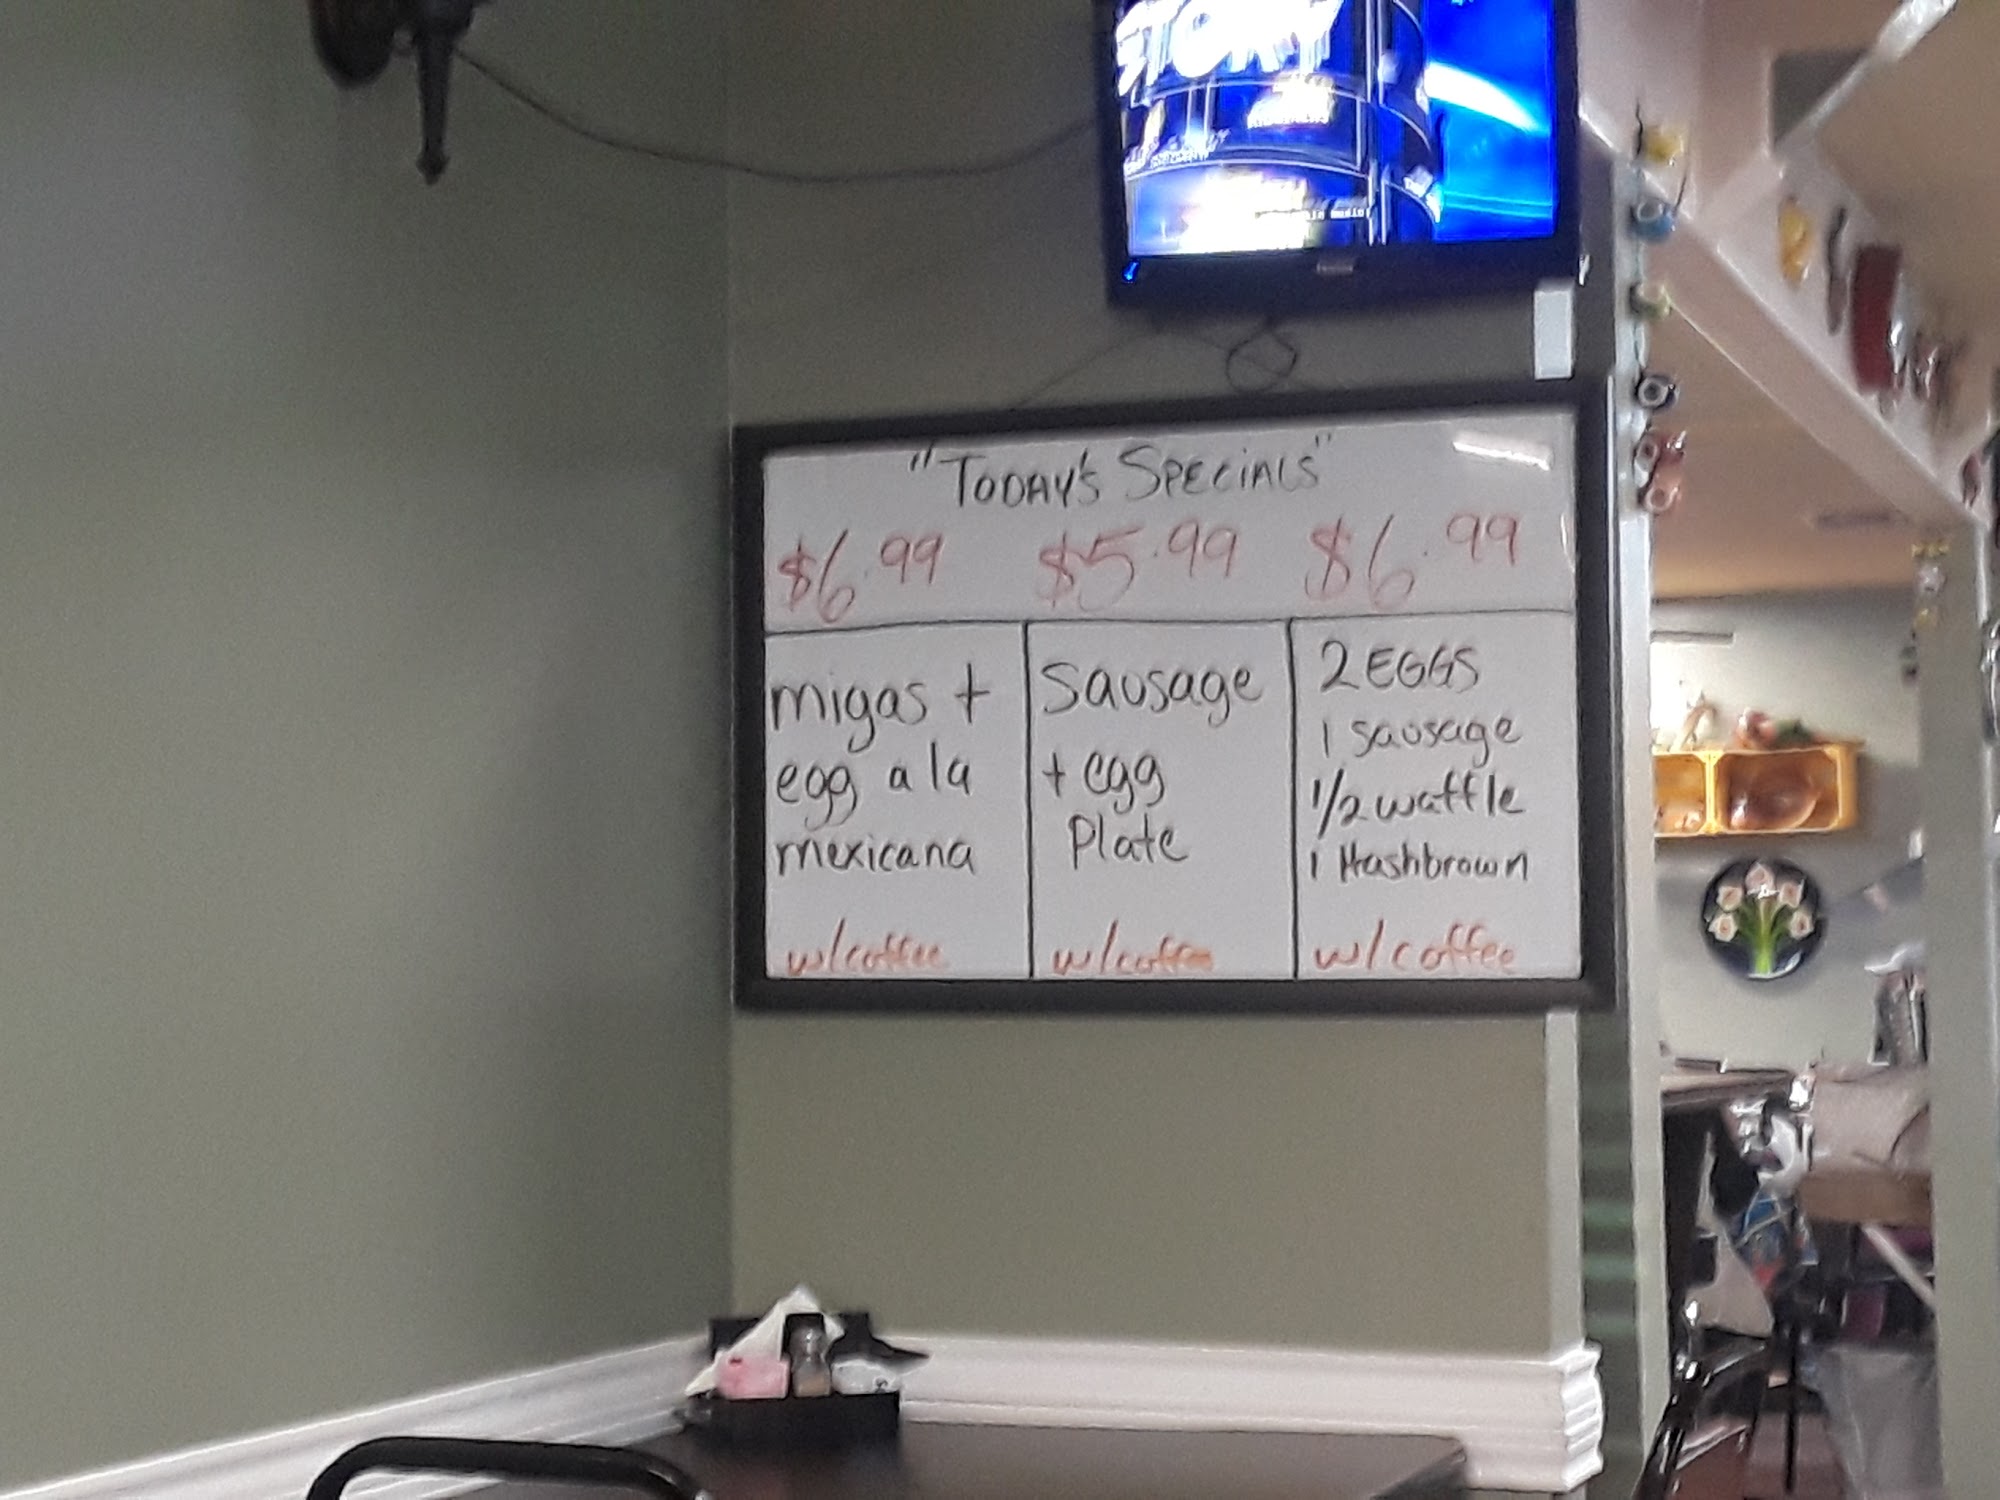 STORY
"TODAY'S SPECIALS"
$6.99 $5.99 $6.99
migas +
egg a la
mexicana
w/coffee
Sausage
+ egg
Plate
w/coffee
2 EGGS
1 sausage
1/2 waffle
1 Hashbrown
w/coffee